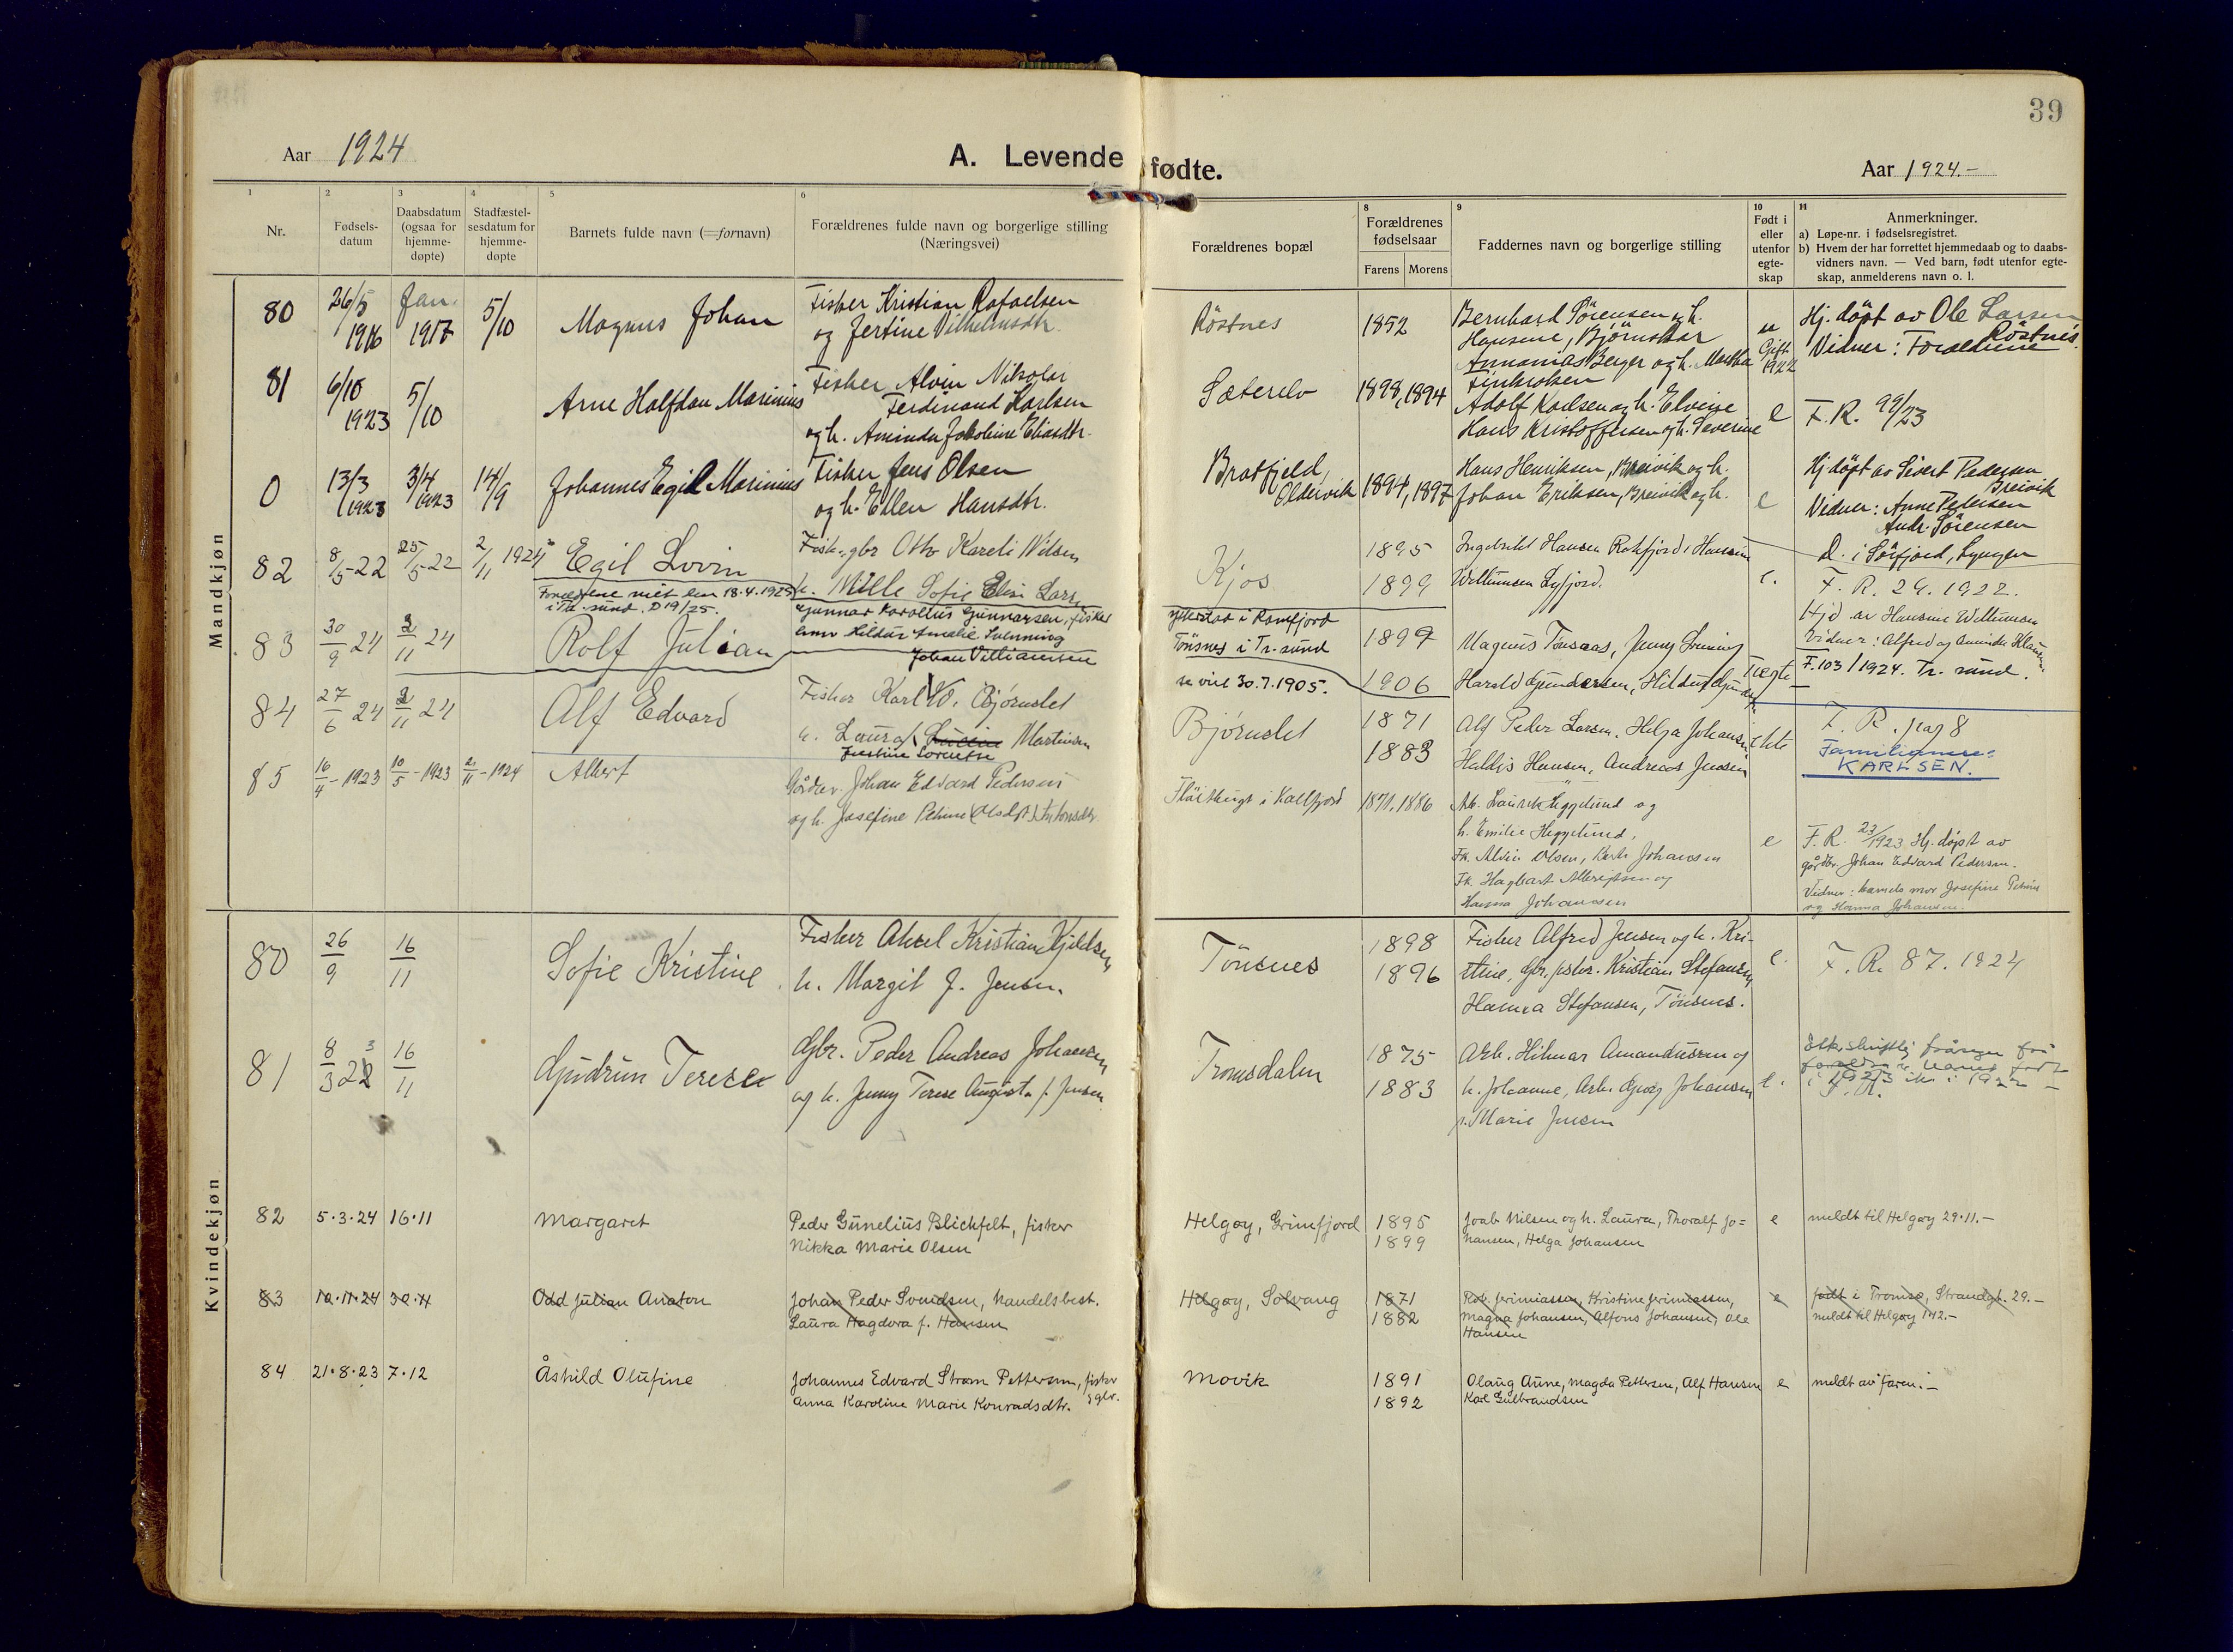 39
Aar 1924
A. Levende fødte.
Aar 1924.-
1 Nr.
2 Fødsels-datum
3 Daabsdatum (ogsaa for hjemme-døpte)
4 Stadfæstel-sesdatum for hjemme-døpte
5 Barnets fulde navn (=fornavn)
6 Forældrenes fulde navn og borgerlige stilling (Næringsvei)
Forældrenes bopæl
8 Forældrenes fødselsaar
Farens Morens
9 Faddernes navn og borgerlige stilling
10 Født i eller utenfor egte-skap
11 Anmerkninger.
a) Løpe-nr. i fødselsregistret.
b) Hvem der har forrettet hjemmedaab og to daabs-
vidners navn. — Ved barn, født utenfor egte-
skap, anmelderens navn o. l.
Mandkjøn
80 26/5 1916 Jan. 1917 5/10 Magnus Johan
Fisker Kristian Rafaelsen
og Jertine Vilhelmsdtr.
Röstnes 1852
Bernhard Sörensen og h.
Hansene, Björnskar
Annanias Berger og h. Martha
Gift 1922
Hj. döpt av Ole Larsen
Röstnes.
Vidner: Forældrene
81 6/10 1923 5/10 Arne Halfdan Marinius
Fisker Alvin Nikolai
Ferdinand Karlsen
og h. Aminda Jakobine Eliasdtr.
Sæterelv 1898, 1894
Adolf Karlsen og h. Elvine
Hans Kristoffersen og h. Severine
e F.R. 99/23
0 13/3 1923 3/4 1923 14/9 Johannes Egil Marinius
Fisker Jens Olsen
og h. Ellen Hansdtr.
Bratfjeld, Oldervik 1894, 1897
Hans Henriksen, Breivik og h.
Johan Eriksen, Breivik og h.
e
Hj döpt av Sivert Pedersen
Breivik
Vidner: Anne Pedersen
Andr. Sörensen
82 8/5-22 25/5-22 2/11 1924 Egil Lovin
Fisk.-gbr Otto Kareli Nilsen
h. Mille Sofie Elisi Lars
Kjos 1895 1899
Ingebrikt Hansen Rakfjord, Hansine
Willumsen Lyfjord.
e.
D. i Sörfjord, Lyngen
F. R. 29. 1922.
Hjd av Hansine Willumsen
Vidner: Alfred og Aminda
Forældrene viet den 18.4.1925
83 30/9 24 2/11 24 Rolf Julian
Gunnar Karolius Gunnarsen, fisker
Hildur Amalie Svenning
Johan Villiamsen
Ytterstad i Ramfjord
Tönsnes i Tr.sund
se viel 30.7.1905.
1899 1906
Magnus Tönsaas, Jenny Svenning
Harald Gundersen, Hildur
uegte
F.103/1924. Tr. sund.
84 27/6 24 2/11 24 Alf Edvard
Fisker Karl W. Bjørnslet
h. Laura Martinsen
Justine Lorentse
Bjørnslet 1871 1883
Alf Peder Larsen, Helga Johansen
Haldis Hansen, Andreas Jensen
ekte
F. R. pag 8
Familienavn:
KARLSEN.
85 16/4-1923 10/5-1923 2/11-1924 Albert
Gårdbr. Johan Edvard Pedersen
og h. Josefine Petrine (Olsdtr.) Antonsdtr.
i Kalfjord 1871. 1886
Arb. Laurits Heggelund og
h. Emilie Heggelund,
Fk. Alvin Olsen, Berti Johansen
Fk. Hagbart Albrigtsen og
Hanna Johansen
e
F. R. 23/1923 Hj. döpt av
gårdbr. Johan Edvard Pedersen.
Vidner: barnets mor Josefine Petrine
og Hanna Johansen.
Kvindekjøn
80 26/9 16/11 Sofie Kristine
Fisker Aksel Kristian Kjeldsen
h. Margit J. Jensen.
Tönsnes 1898 1896
Fisker Alfred Jensen og h. Kri-
stine, Gbr. fisker. Kristian Stefansen,
Hanna Stefansen, Tönsnes.
e. F. R. 87. 1924
81 8/3 22 3 16/11 Gudrun Terese
Gbr. Peder Andreas Johansen
og h. Jenny Terese Augusta f. Jensen
Tromsdalen 1875 1883
Arb. Hilmar Amandussen og
h. Johanne, Arb. Georg Johansen
p. Marie Jensen
e.
i 1923 ikke i 1922 -
F. R.
82 5·3·24 16·11 Margaret
Peder Gunelius Blickfelt, fisker
Nikka Marie Olsen
Helgøy, Grunfjord 1895 1899
Joab Nilsen og h. Laura, Thoralf Jo=
hansen, Helga Johansen
e meldt til Helgøy 29·11.-
83 10·11·24 30·11 Odd Julian Anaton
Johan Peder Svendsen, handelsbest.
Laura Hagdora f. Hansen
Helgøy, Solvang 1871 1882
Rob. Jerimiassen, Kristine Jerimiassen,
Magna Johansen, Alfons Johansen, Ole
Hansen
e
født i Tromsø, Strandgt. 29.-
meldt til Helgøy 1·12.-
84 21·8·23 7·12 Åshild Olufine
Johannes Edvard Strøm Pettersen, fisker
Anna Karoline Marie Konradsdtr. & gbr.
Movik 1891 1892
Olaug Aune, Magda Pettersen, Alf Hansen
Karl Gulbrandsen
e meldt av faren.-